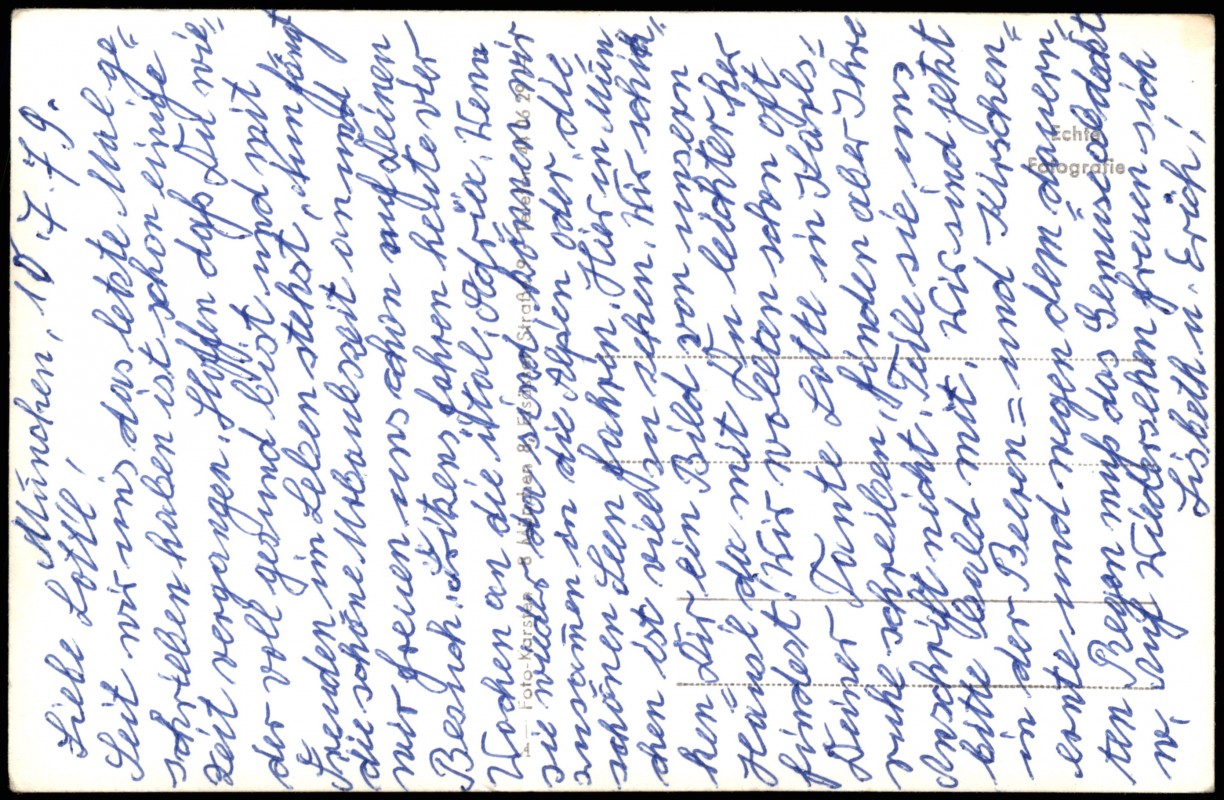 München, 10.7.79.
Liebe Lotti,
Seit wir uns das letzte Mal ge=
schrieben haben ist schon einige
Zeit vergangen. Hoffen daß Du wie=
der voll gesund bist und mit
Freuden im Leben stehst. Nun fängt
die schöne Urlaubszeit an und
wir freuen uns schon auf Deinen
Besuch. Lütkens fahren heute vier
Wochen an die ital. Adria. Wenn
sie wieder da sind können wir
zusamen in die Alpen oder, die
schönen Seen fahren. Hier in Mün=
chen ist viel zu sehen. Wir schik=
ken Dir ein Bild von unsern
Haus damit Du leichter her
findest. Wir wollten schon oft
Deiner Tante Lotte in Karls=
ruhe schreiben, finden aber Ihre
Anschrift nicht. Teile sie uns
bitte bald mit. Wir sind jetzt
in der Beeren= und Kirschen=
ernte und wegen dem dauern=
ten Regen muß das Gemüse gedeckt
w. Auf Wiedersehen freuen sich
Lisbeth u. Erich,
Echte
Fotografie
Foto-Karsten 8 München 83